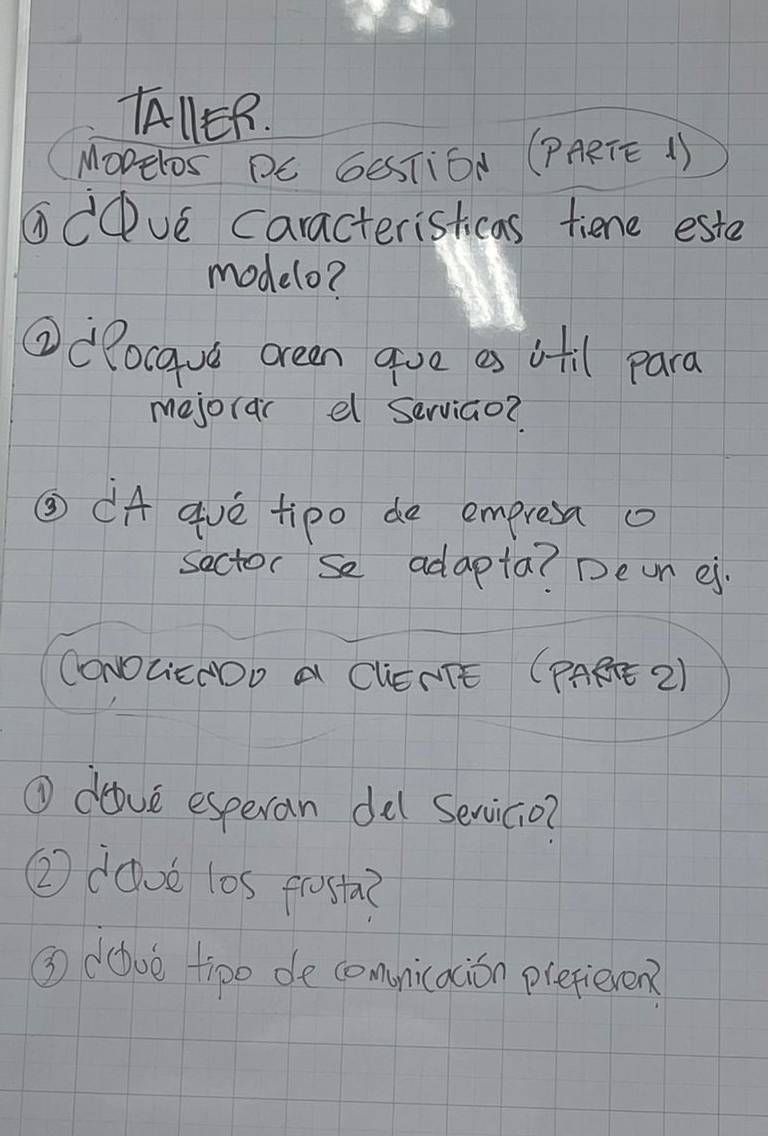 TALLER.
MODELOS DE GESTIÓN (PARTE 1)
① ¿Qué características tiene este
modelo?
② ¿Porqué creen que es útil para
mejorar el servicio?
③ ¿A qué tipo de empresa o
sector se adapta? De un ej.
CONOCIENDO al CLIENTE (PARTE 2)
① ¿Qué esperan del servicio?
② ¿Qué los frusta?
③ ¿Qué tipo de comunicación prefieren?